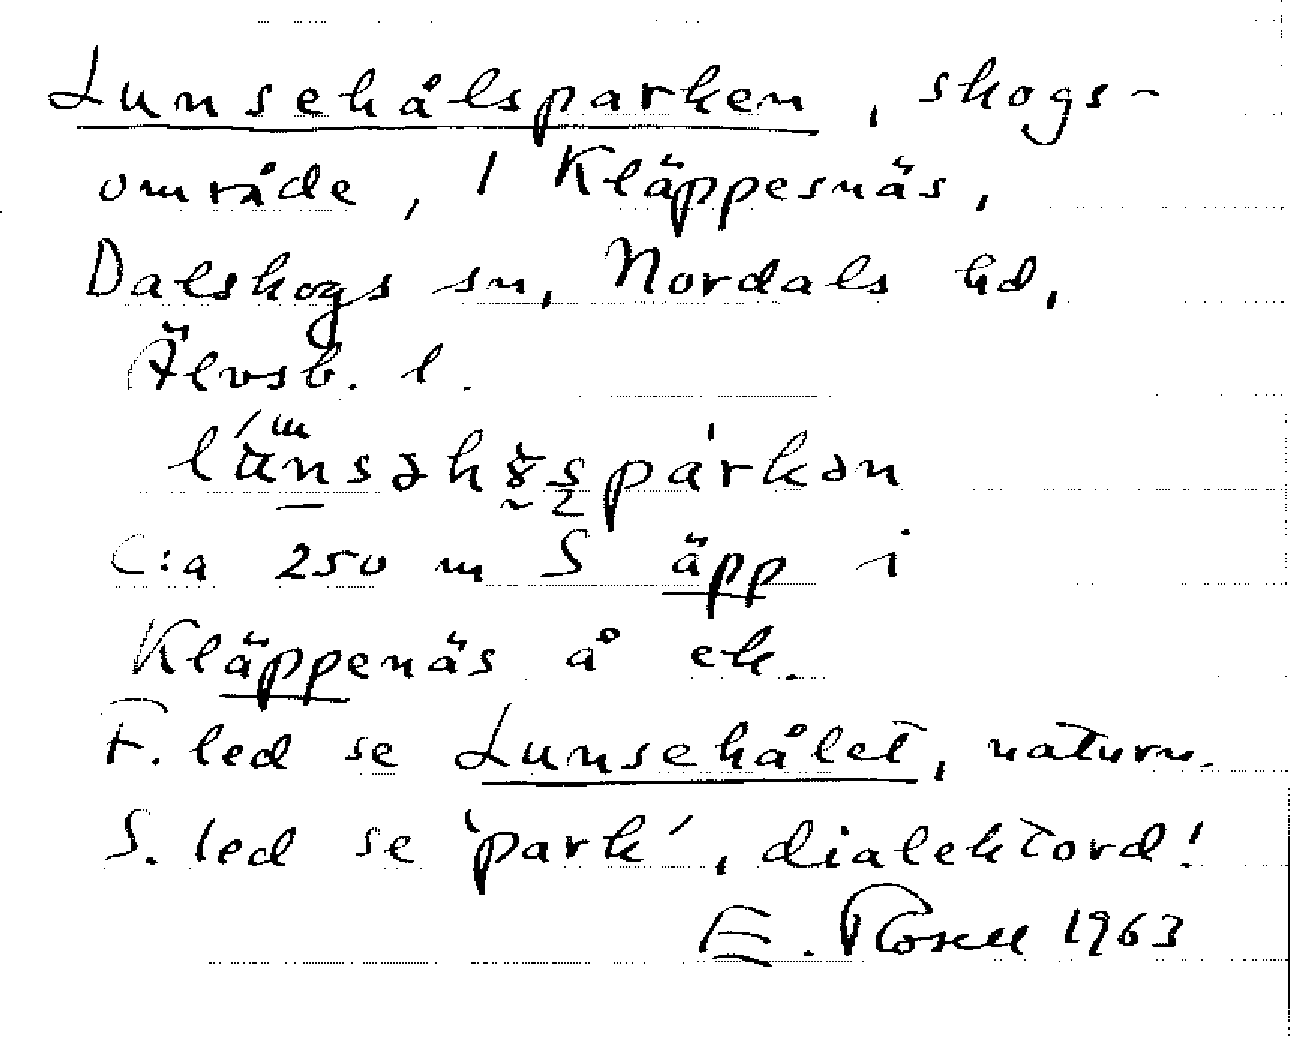 Lunsehålsparken, skogs-
område, 1 Kläppesnäs,
Dalskogs sn, Nordals hd,
Älvsb. l.
C:a 250 m S äpp i
Kläppenäs å ek.
F. led se Lunsehålet, naturn.
S. led se 'park', dialektord!
E. Rosell 1963